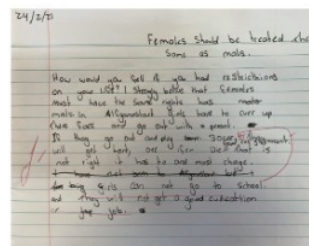 24/2/21
Females should be treated the
same as mals.
How would you fell if you had restrictions
on your life? I strongly belive that females
must have the same rights has
mals. In Afganustant girls have to cover up
their faces and go out with a parent.
If they go out and play soccer they
will get hurt, are even die. that is
not right it has to and most change.
girls can not go to school.
and they will not get a good education
or job.